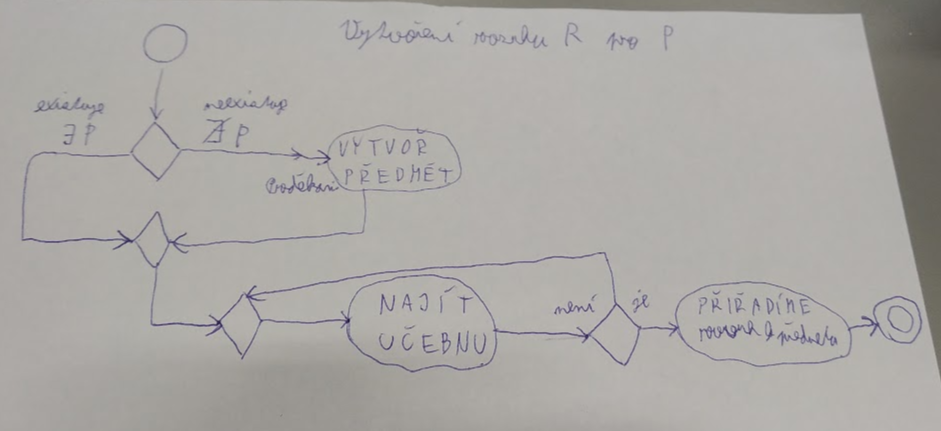 Vytvoření rozvrhu R pro P
existuje
∃ P
neexistuje
∄ P
VYTVOŘ
PŘEDMĚT
NAJÍT
UČEBNU
není
je
PŘIŘADÍME
rozvrh